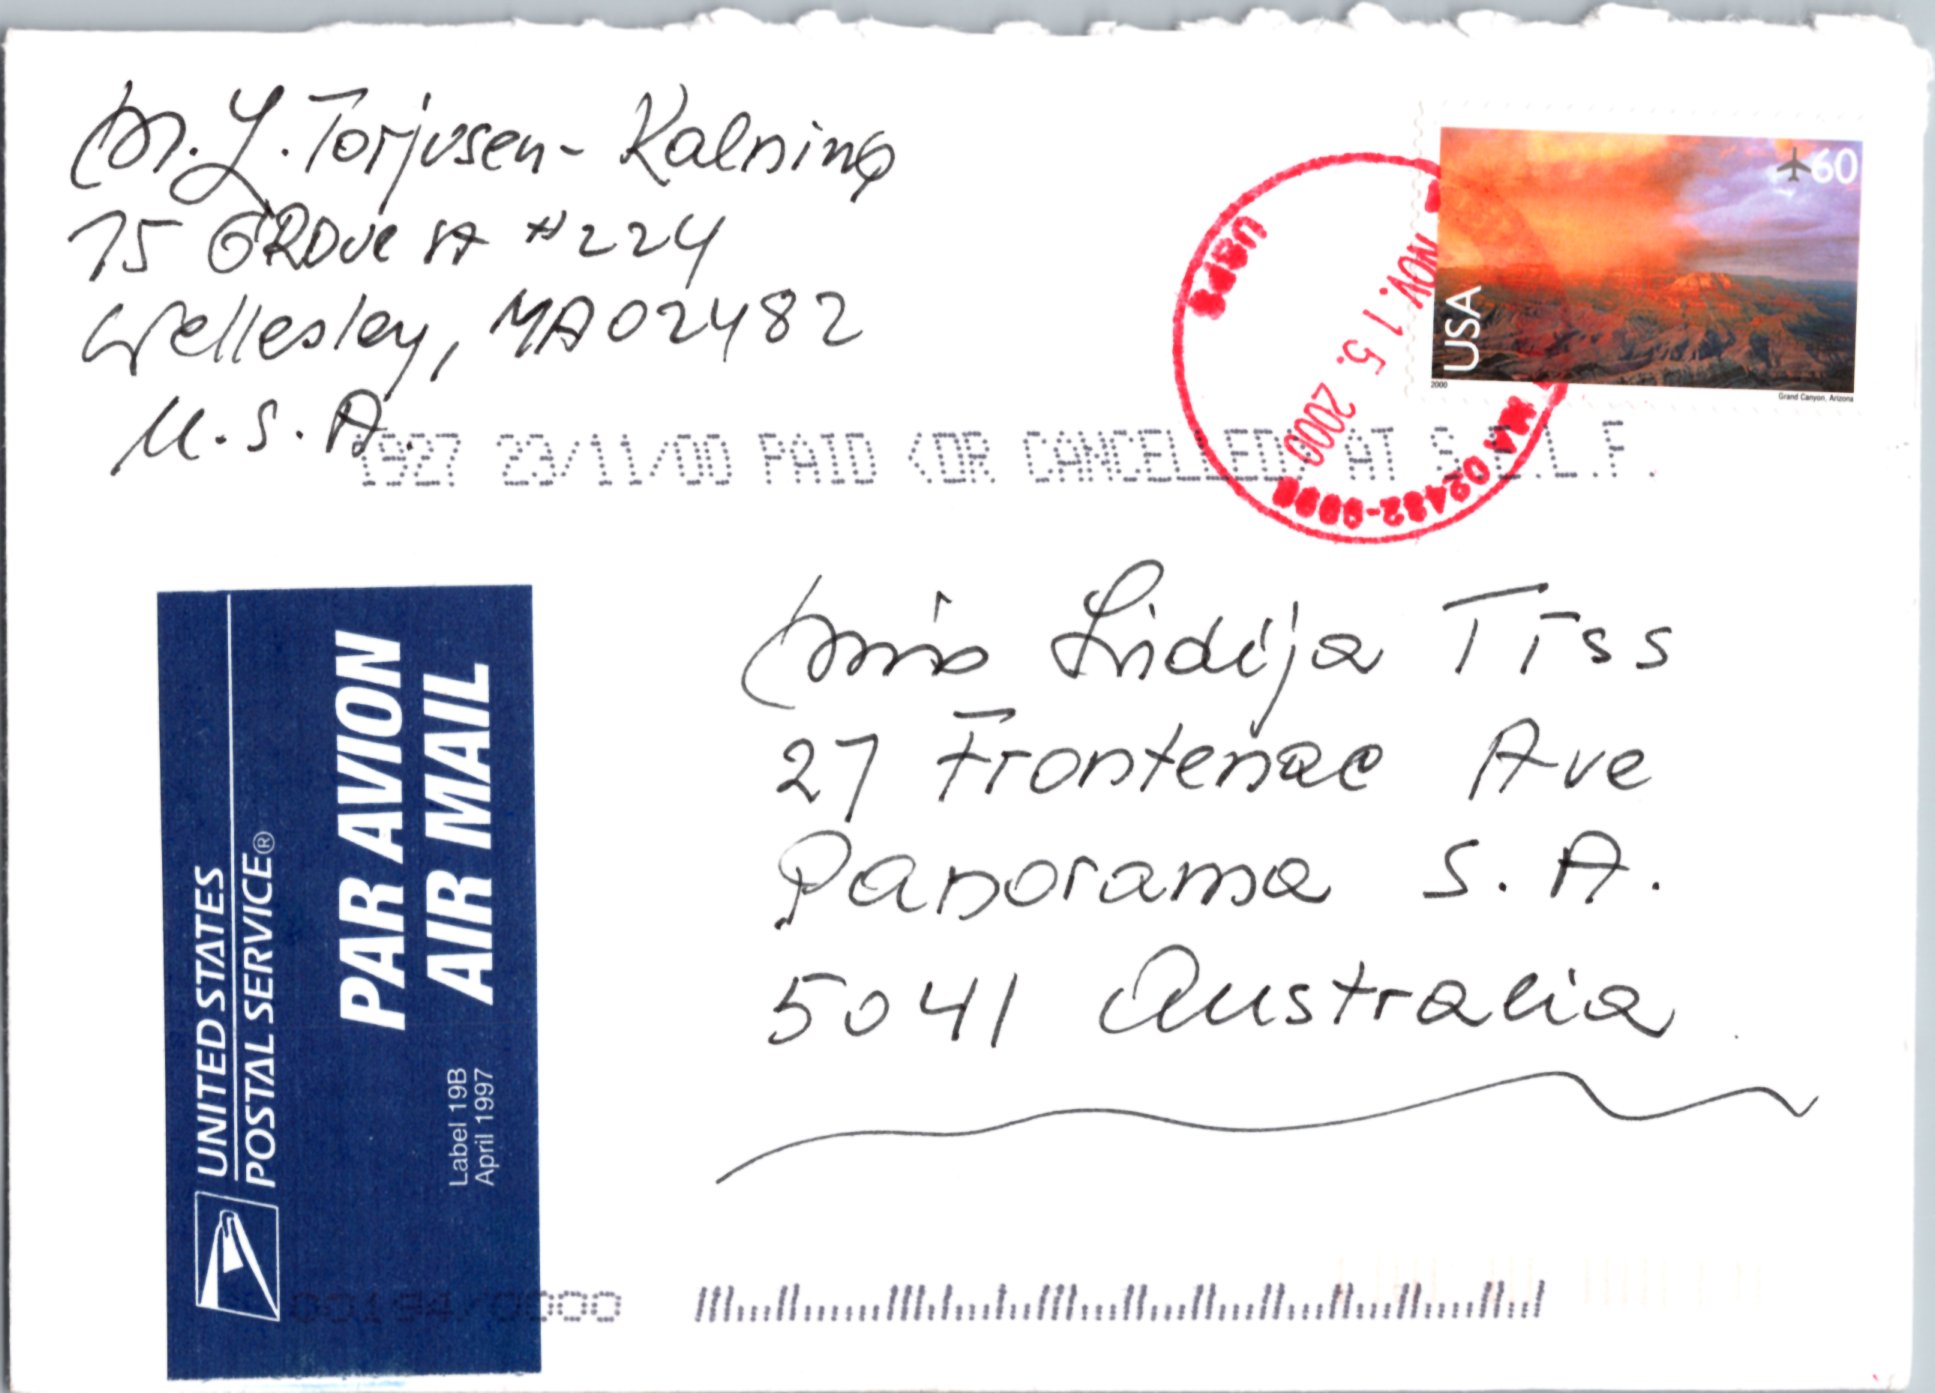 M. L. Torjusen-Kalning
75 GROVE St #224
Wellesley, MA 02482
U.S.A.
60
USA
2000
Grand Canyon, Arizona
USPS
NOV. 15. 2000
MA 02482-9998
1927 23/11/00 PAID (OR CANCELLED) AT S.E.L.F.
UNITED STATES
POSTAL SERVICE®
PAR AVION
AIR MAIL
Label 19B
April 1997
Lidija Tiss
27 Frontenac Ave
Panorama S.A.
5041 Australia
00194/0000